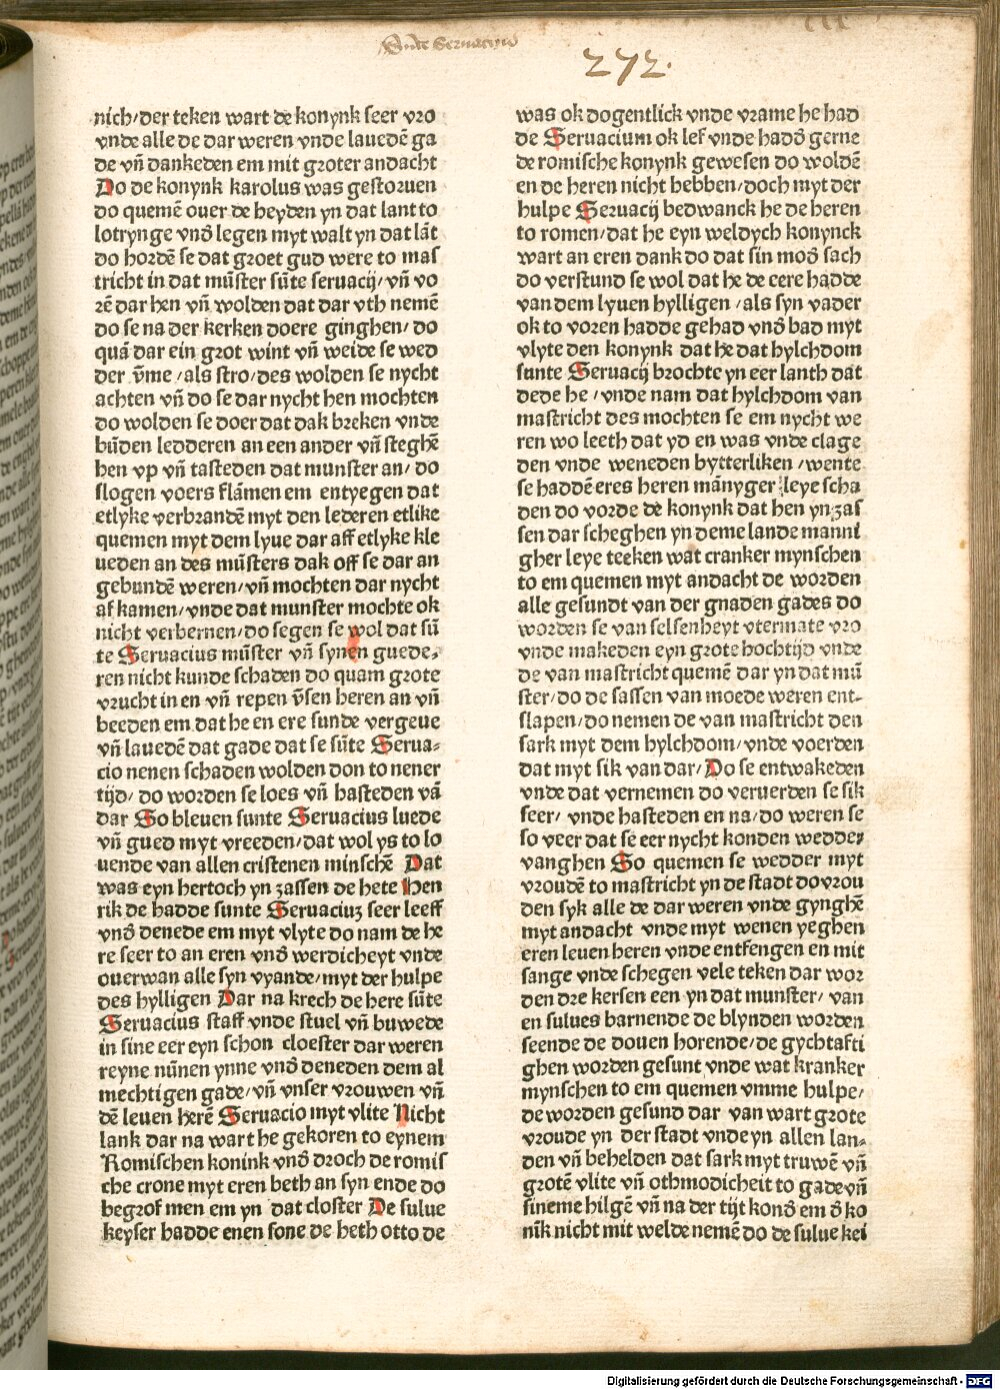 Sunte Servacius
272.
nich/der teken wart de konynk seer vro
vnde alle de dar weren vnde lauedē ga
de vn̄ dankeden em mit groter andacht
Do de konynk karolus was gestoruen
do quemē ouer de heyden yn dat lant to
lotrynge vnd̄ legen myt walt yn dat lāt
do hordē se dat groet gud were to mas
tricht in dat mūster sūte seruacij/vn̄ vo
rē dar hen vn̄ wolden dat dar vth nemē
do se na der kerken doere ginghen/do
quā dar ein grot wint vn̄ weide se wed
der v̄me/als stro/des wolden se nycht
achten vn̄ do se dar nycht hen mochten
do wolden se doer dat dak breken vnde
būden ledderen an een ander vn̄ steghē
hen vp vn̄ tasteden dat munster an/do
slogen voers flāmen em entyegen dat
etlyke verbrandē myt den lederen etlike
quemen myt dem lyue dar aff etlyke kle
ueden an des mūsters dak off se dar an
gebundē weren/vn̄ mochten dar nycht
af kamen/vnde dat munster mochte ok
nicht verbernen/do segen se wol dat sū
te Seruacius mūster vn̄ synen guede,
ren nicht kunde schaden do quam grote
vrucht in en vn̄ repen v̄sen heren an vn̄
beeden em dat he en ere sunde vergeue
vn̄ lauedē dat gade dat se sūte Serua-
cio nenen schaden wolden don to nener
tijd/do worden se loes vn̄ hasteden vā
dar So bleuen sunte Seruacius luede
vn̄ gued myt vreeden/dat wol ys to lo
uende van allen cristenen minschē Dat
was eyn hertoch yn zassen de hete Hen
rik de hadde sunte Seruaciuz seer leeff
vnd̄ denede em myt vlyte do nam de he
re seer to an eren vnd̄ werdicheyt vnde
ouerwan alle syn vyande/myt der hulpe
des hylligen Dar na krech de here sūte
Seruacius staff vnde stuel vn̄ buwede
in sine eer eyn schon cloester dar weren
reyne nūnen ynne vnd̄ deneden dem al
mechtigen gade/vn̄ vnser vrouwen vn̄
dē leuen herē Seruacio myt vlite Nicht
lank dar na wart he gekoren to eynem
Romischen konink vnd̄ droch de romis
che crone myt eren beth an syn ende do
begrof men em yn dat closter De sulue
keyser hadde enen sone de heth otto de
was ok dogentlick vnde vrame he had
de Seruacium ok lef vnde had̄ gerne
de romische konynk gewesen do woldē
en de heren nicht hebben/doch myt der
hulpe Seruacij bedwanck he de heren
to romen/dat he eyn weldych konynck
wart an eren dank do dat sin mod̄ sach
do verstund se wol dat he de eere hadde
van dem lyuen hylligen/als syn vader
ok to voren hadde gehad vnd̄ bad myt
vlyte den konynk dat he dat hylchdom
sunte Seruacij brochte yn eer lanth dat
dede he/vnde nam dat hylchdom van
mastricht des mochten se em nycht we
ren wo leeth dat yd en was vnde clage
den vnde weneden bytterliken/wente
se haddē eres heren mānyger leye scha
den do vorde de konynk dat hen yn zas
sen dar scheghen yn deme lande manni
gher leye teeken wat cranker mynschen
to em quemen myt andacht de worden
alle gesundt van der gnaden gades do
worden se van selsenheyt vtermate vro
vnde makeden eyn grote hochtijd vnde
de van mastricht quemē dar yn dat mū
ster/do de sassen van moede weren ent-
slapen/do nemen de van mastricht den
sark myt dem hylchdom/vnde voerden
dat myt sik van dar/Do se entwakeden
vnde dat vernemen do veruerden se sik
seer/vnde hasteden en na/do weren se
so veer dat se eer nycht konden wedder
vanghen So quemen se wedder myt
vroudē to mastricht yn de stadt do vrou
den syk alle de dar weren vnde gynghē
myt andacht vnde myt wenen yeghen
eren leuen heren vnde entfengen en mit
sange vnde schegen vele teken dar wor
den dre kersen een yn dat munster/van
en sulues barnende de blynden worden
seende de douen horende/de gychtafti
ghen worden gesunt vnde wat kranker
mynschen to em quemen vmme hulpe/
de worden gesund dar van wart grote
vroude yn der stadt vnde yn allen lan-
den vn̄ behelden dat sark myt truwē vn̄
grotē vlite vn̄ othmodicheit to gade vn̄
sineme hilgē vn̄ na der tijt kond̄ em d̄ ko
nīk nicht mit welde nemē do de sulue kei
Digitalisierung gefördert durch die Deutsche Forschungsgemeinschaft - DFG